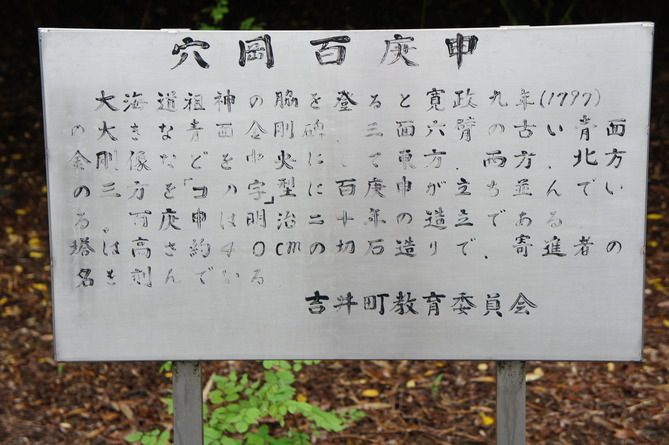 穴岡百庚申
大海道祖神の脇を登ると寛政九年(1797)
の大きな青面金剛碑、三面六臂の古い青面
金剛像などを中央にして東方、西方、北方
の三方を「コ」の字型に百庚申が立ち並んでい
る。百庚申は明治二十年の造立である。
塔は高さ約40cmの切石造りで、寄進者の
名を刻んでいる
吉井町教育委員会